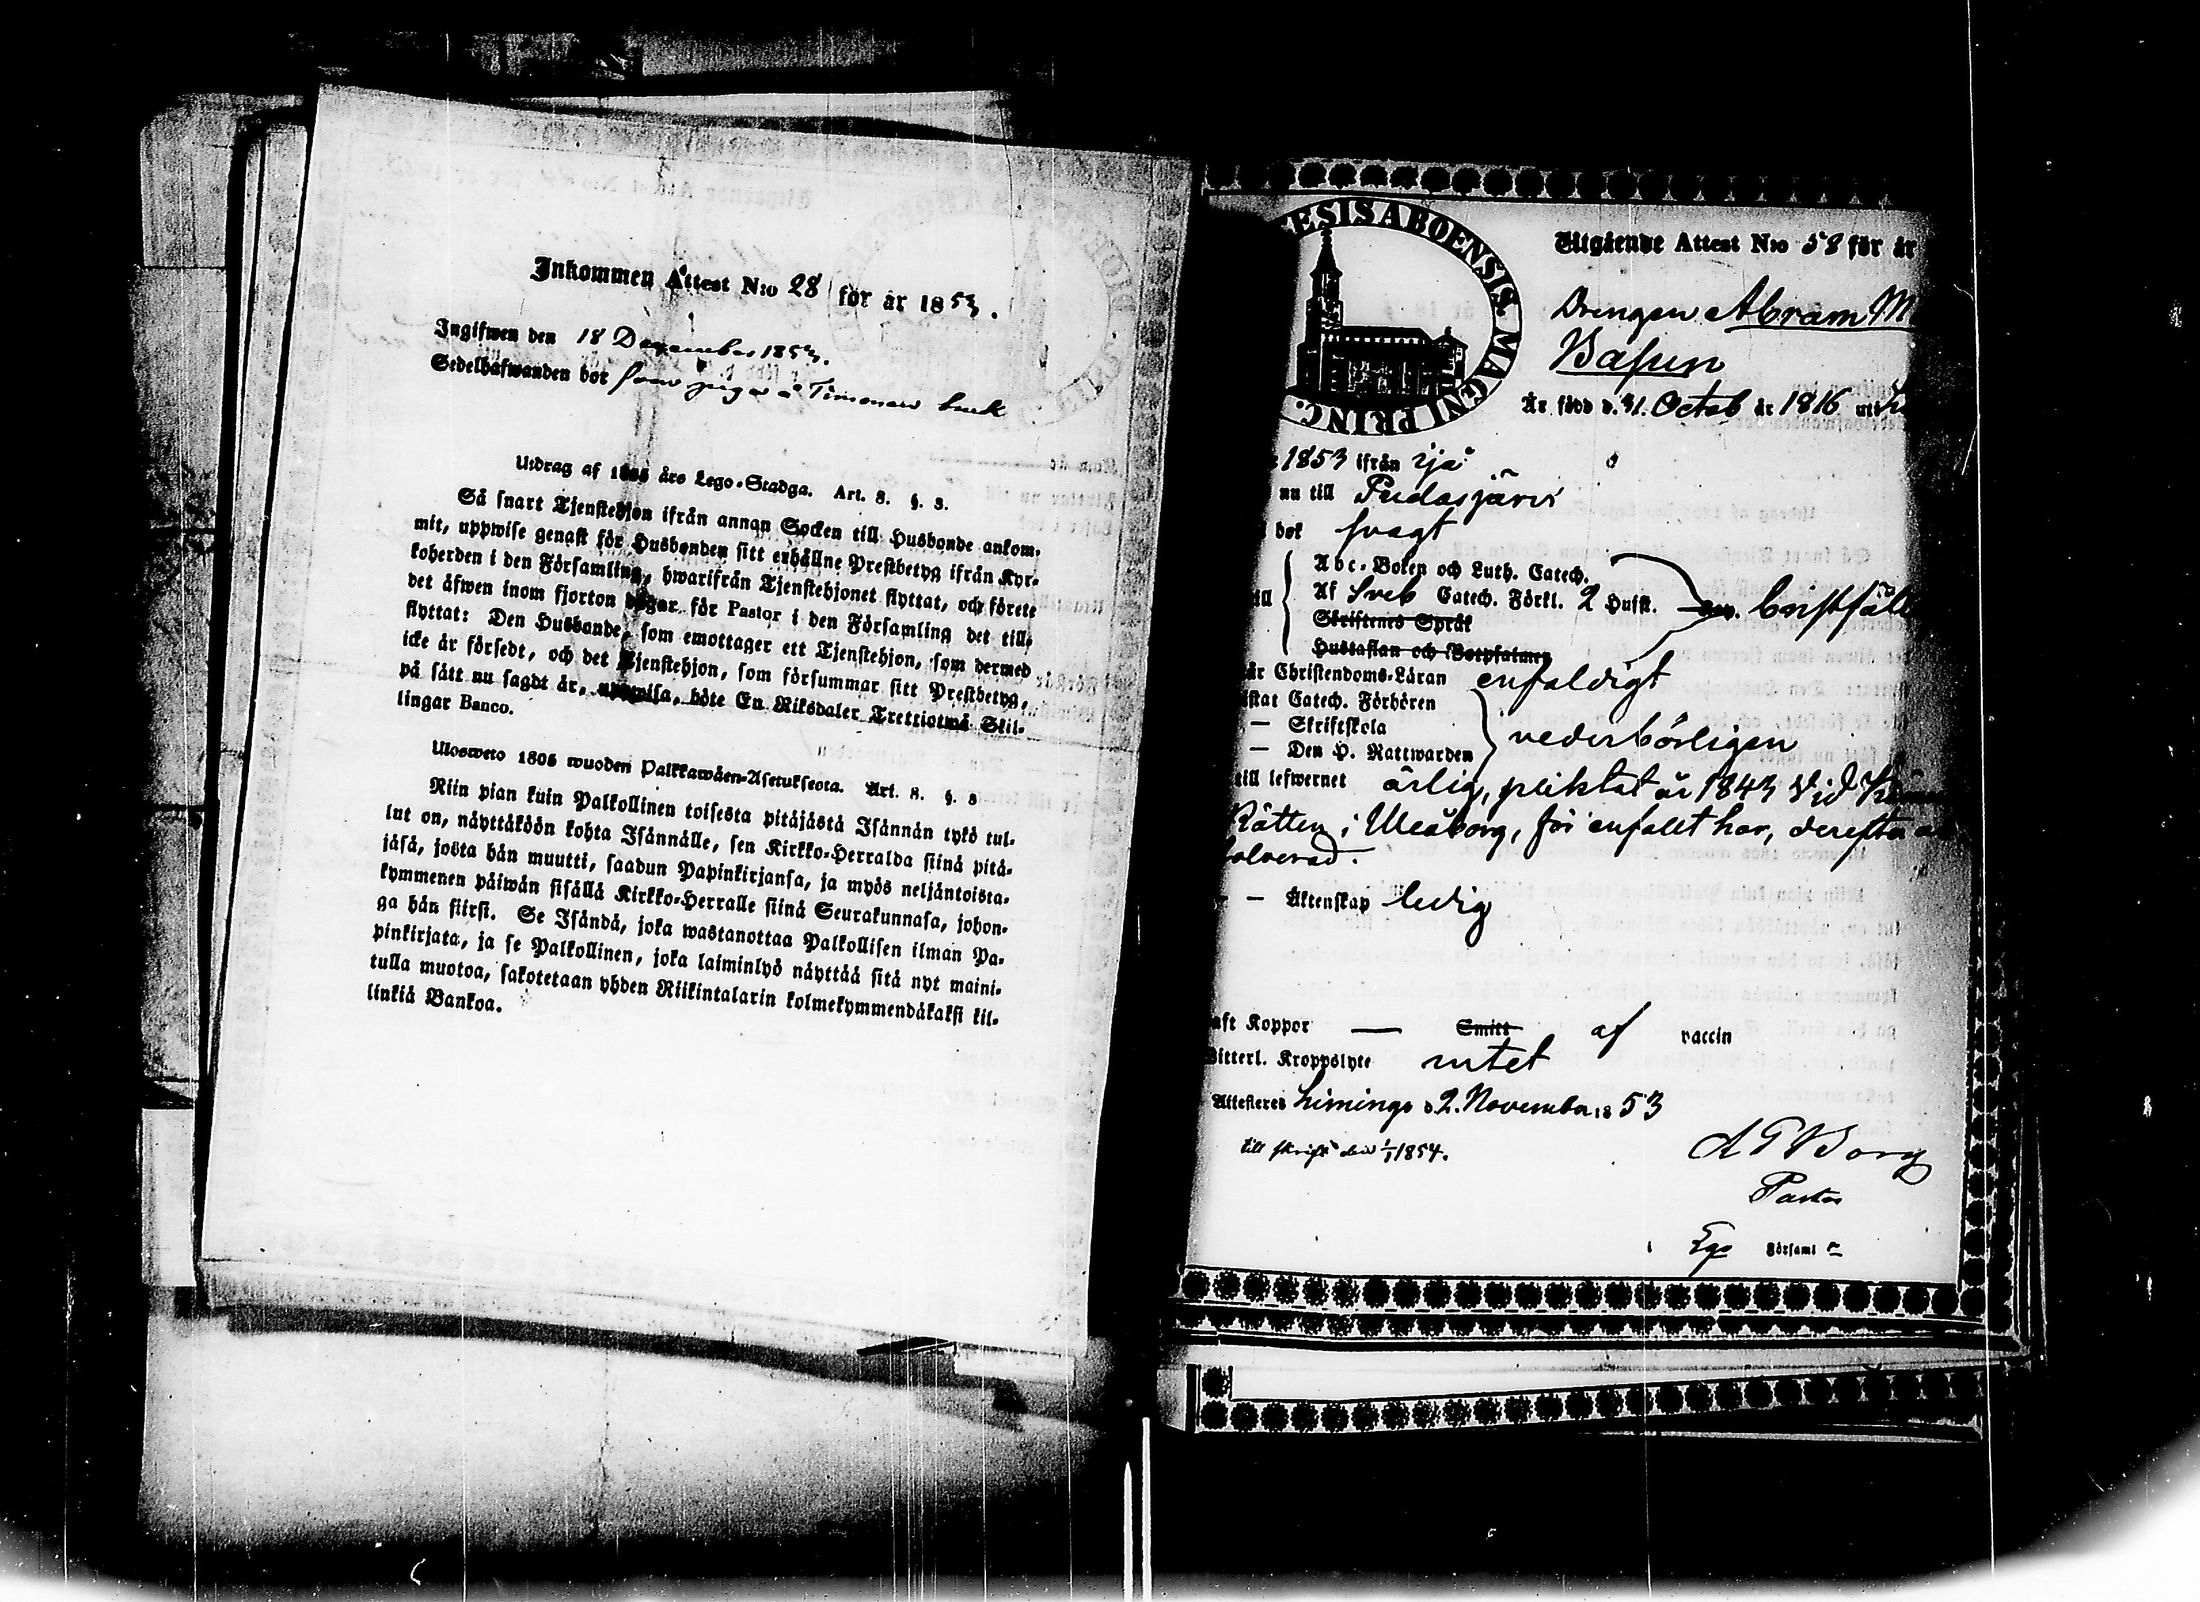 Inkommen Attest N:o 28 för år 1853.
Ingifwen den 18 December 1853.
Sedelhafwanden bor som piga å Timonen
Utdrag af 1805 års Lego-Stadga. Art. 8. §. 3.
Så snart Tjenstehjon ifrån annan Socken till Husbonde ankom-
mit, uppwise genast för Husbonden sitt erhållne Prestbetyg ifrån Kyr-
koherden i den Församling, hwarifrån Tjenstehjonet flyttat, och förete
det äfwen inom fjorton dagar för Pastor i den Församling det till-
flyttat: Den Husbonde, som emottager ett Tjenstehjon, som dermed
icke är försedt, och det Tjenstehjon, som försummar sitt Prestbetyg,
på sätt nu sagdt är, uppwisa, böte En Riksdaler Trettiotwå Skil-
lingar Banco.
Ulosweto 1805 wuoden Palkkawäen-Asetuksesta. Art. 8. §. 3
Niin pian kuin Palkollinen toisesta pitäjästä Isännän tykö tul-
lut on, näyttäköön kohta Isännälle, sen Kirkko-Herralda siinä pitä-
jäsä, josta hän muutti, saadun Papinkirjansa, ja myös neljäntoista-
kymmenen päiwän sisällä Kirkko-Herralle siinä Seurakunnasa, johon-
ga hän siirsi. Se Isändä, joka wastanottaa Palkollisen ilman Pa-
pinkirjata, ja se Palkollinen, joka laiminlyö näyttää sitä nyt maini-
tulla muotoa, sakotetaan yhden Riikintalarin kolmekymmendäkaksi kil-
linkiä Bankoa.
ESIS ABOENSIS. MAGNI PRINC.
Utgående Attest N:o 58 för år
Drengen Abram M
Är född d. 31. Octob år 1816 uti
1853 ifrån
nu till Pudasjärvi
bok svagt
Abc-Boken och Luth. Catech.
Af Sveb Catech. Förkl. 2 Hufst. bristfäll
Skriftenes Språk
Hustaflan och Botpsalmer
är Christendoms-Läran enfaldigt
stat Catech. Förhören
— Skriftskola
— Den H. Nattwarden vederbörligen
till lefwernet ärlig, pliktat år 1843 vid
Rätten i Uleåborg, för enfallt hor, derefter
solverad.
— — Äktenskap ledig
aft Koppor — Smitt af vaccin
Witterl. Kroppslyte intet
Attesteras Limingo d 2. November 1853
till skrift den 1/1 1854.
Borg
Pastor
Församl